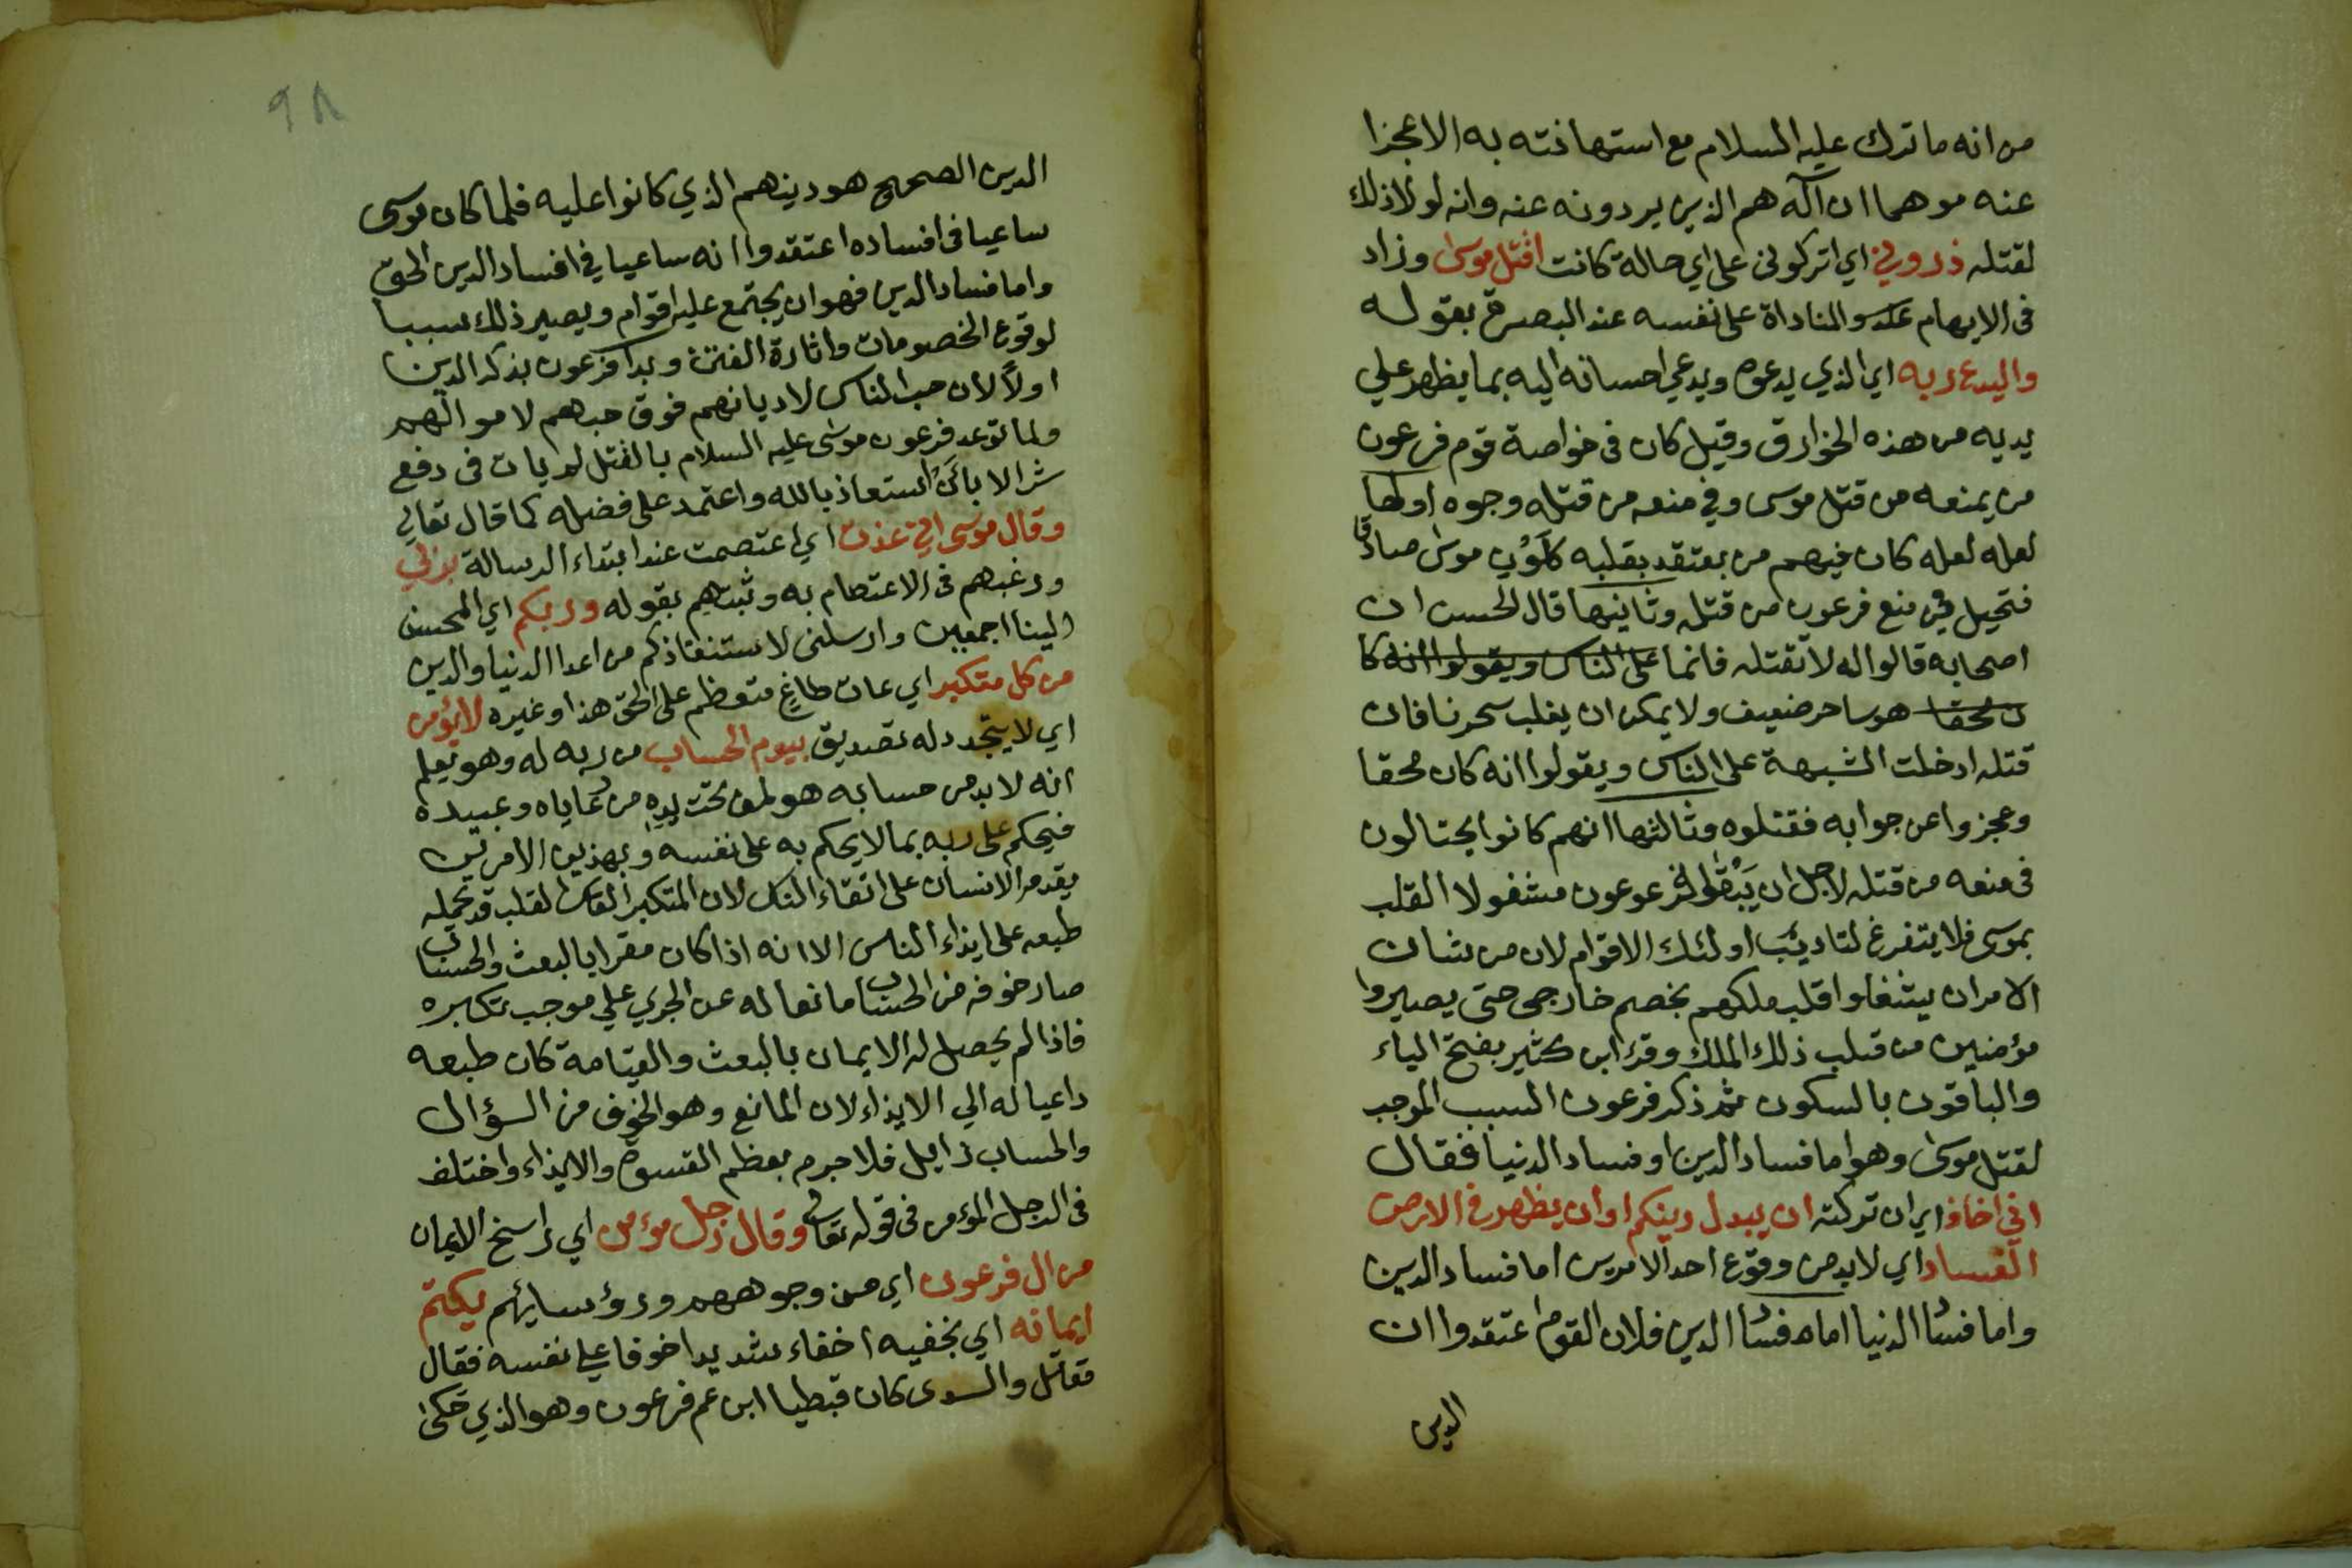 من انه ما ترك عليه السلام مع استهانته به الا عجزا
عنه موهما ان آله هم الذين يردونه عنه وانه لولا ذلك
لقتله ذروني اي اتركوني على اي حالة كانت اقتل موسى وزاد
في الايهام والمناداة على نفسه عند البصرة بقوله
وليدع ربه اي الذي يدعوه ويدعي احسانه اليه بما يظهر علي
يديه من هذه الخوارق وقيل كان في خواصة قوم فرعون
من يمنعه من قتل موسى وفي منعه من قتله وجوه اولها
لعله لعله كان فيهم من يعتقد بقلبه كون موسى صادقا
فتحيل في منع فرعون من قتله وثانيها قال الحسن ان
اصحابه قالوا له لا تقتله فانما على الناس ويقولوا انه كا
ن محقا هو ساحر ضعيف ولا يمكن ان يغلب سحرنا فان
قتله ادخلت الشبهة على الناس ويقولوا انه كان محقا
وعجزوا عن جوابه فقتلوه وثالثها انهم كانوا يحتالون
في منعه من قتله لاجل ان يبقوا فرعوعون مشغولا القلب
بموسى فلا يتفرغ لتاديب اولئك الاقوام لان من شان
الامر ان يشغلوا قلب ملكهم بخصم خارجي حتى يصيروا
مؤمنين من قلب ذلك الملك وقرء ابن كثير بفتح الياء
والباقون بالسكون ثم ذكر فرعون السبب الموجب
لقتل موسى وهو اما فساد الدين او فساد الدنيا فقال
اني اخاف اي ان تركته ان يبدل دينكم او ان يظهر في الارض
الفساد اي لا بد من وقوع احد الامرين اما فساد الدين
واما فساد الدنيا اما فساد الدين فلان القوم اعتقدوا ان
الدين
٩٨
الدين الصحيح هو دينهم الذي كانوا عليه فلما كان موسى
ساعيا في افساده اعتقدوا انه ساعيا في افساد الدين الحق
واما فساد الدين فهو ان يجتمع عليه اقوام ويصير ذلك سببا
لوقوع الخصومات واثارة الفتن وبدا فرعون بذكر الدين
اولا لان حب الناس لاديانهم فوق حبهم لاموالهم
ولما توعد فرعون موسى عليه السلام بالقتل لم يات في دفع
شر الا بان استعاذ بالله واعتمد على فضله كما قال تعالى
وقال موسى اني عذت اي اعتصمت عند ابتداء الرسالة بربي
ورغبهم في الاعتصام به وثبتهم بقوله وربكم اي المحسن
الينا اجمعين وارسلني لاستنقاذكم من اعدا الدنيا والدين
من كل متكبر اي عات طاغ متعظم على الحق هذا وغيره لا يؤمن
اي لا يتجدد له تصديق بيوم الحساب من ربه له وهو يعلم
انه لا بد من حسابه هو لمن تحت يده من رعاياه وعبيده
فيحكم على ربه بما لا يحكم به على نفسه وبهذين الامرين
يقدم الانسان على اتقاء الناس لان المتكبر القاس القلب قد تحمله
طبعه على ايذاء الناس الا انه اذا كان مقرا بالبعث والحساب
صار خوفه من الحساب مانعا له عن الجري علي موجب تكبره
فاذا لم يحصل له الايمان بالبعث والقيامة كان طبعه
داعيا له الي الايذاء لان المانع وهو الخوف من السؤال
والحساب زايل فلا جرم بعظم القسوة والايذاء واختلف
في الرجل المؤمن في قوله تعالى وقال رجل مؤمن اي راسخ الايمان
من ال فرعون اي من وجوههم ورؤسايهم يكتم
ايمانه اي يخفيه اخفاء شديدا خوفا علي نفسه فقال
مقاتل والسدى كان قبطيا ابن عم فرعون وهو الذي حكى